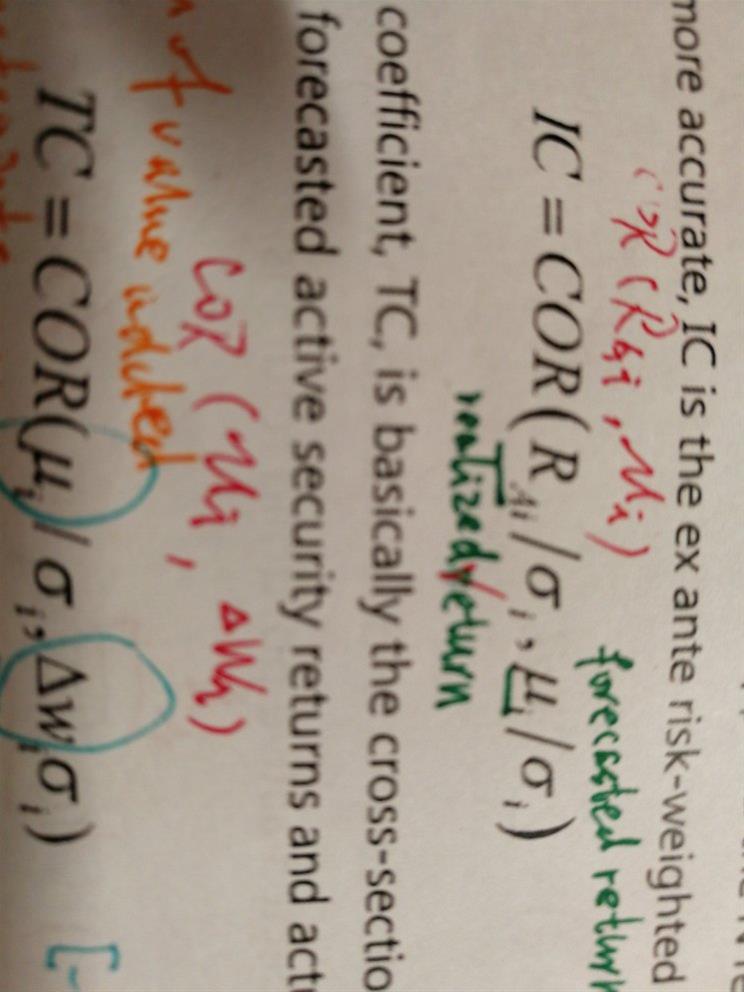 more accurate, IC is the ex ante risk-weighted
COR (RAi, μi)
forecasted return
IC = COR(R_Ai/σ_i, μ_i/σ_i)
realized return
coefficient, TC, is basically the cross-sectio
forecasted active security returns and actu
COR (μi, ΔWi)
of value added
TC = COR(μ_i/σ_i, Δw_iσ_i)
[-